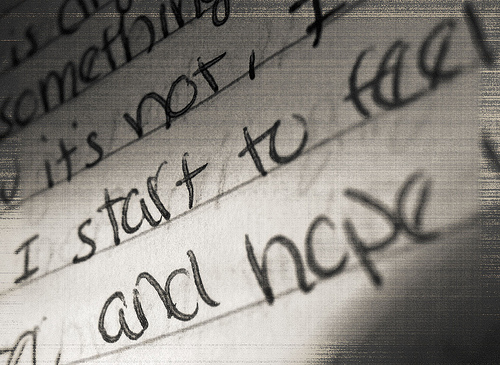 is
something
it's not, I
I start to feel
and hope